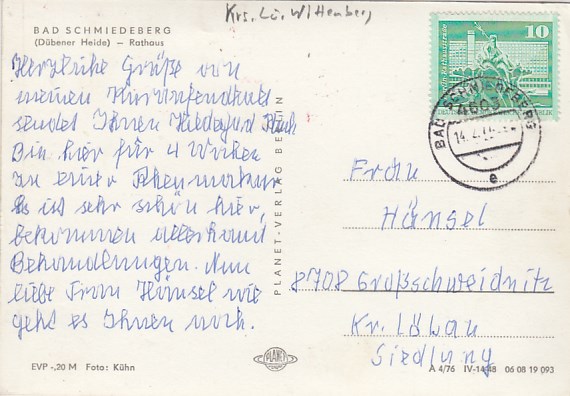 Krs. Lu. Wittenberg
BAD SCHMIEDEBERG
(Dübener Heide) – Rathaus
Herzliche Grüße von
meinem Kuraufenthalt
sendet Ihnen Hildegard
Bin hier für 4 Wochen
zu einer Rheumakur
Es ist sehr schön hier,
bekommen allerhand
Behandlungen. Nun
liebe Frau Hänsel wie
geht es Ihnen noch.
EVP -,20 M Foto: Kühn
PLANET-VERLAG BERLIN
PLANET
10
BAD SCHMIEDEBERG
4603
14.2.77
e
Frau
Hänsel
8708 Großschweidnitz
Kr. Löbau
Siedlung
A 4/76 IV-14-48 06 08 19 093